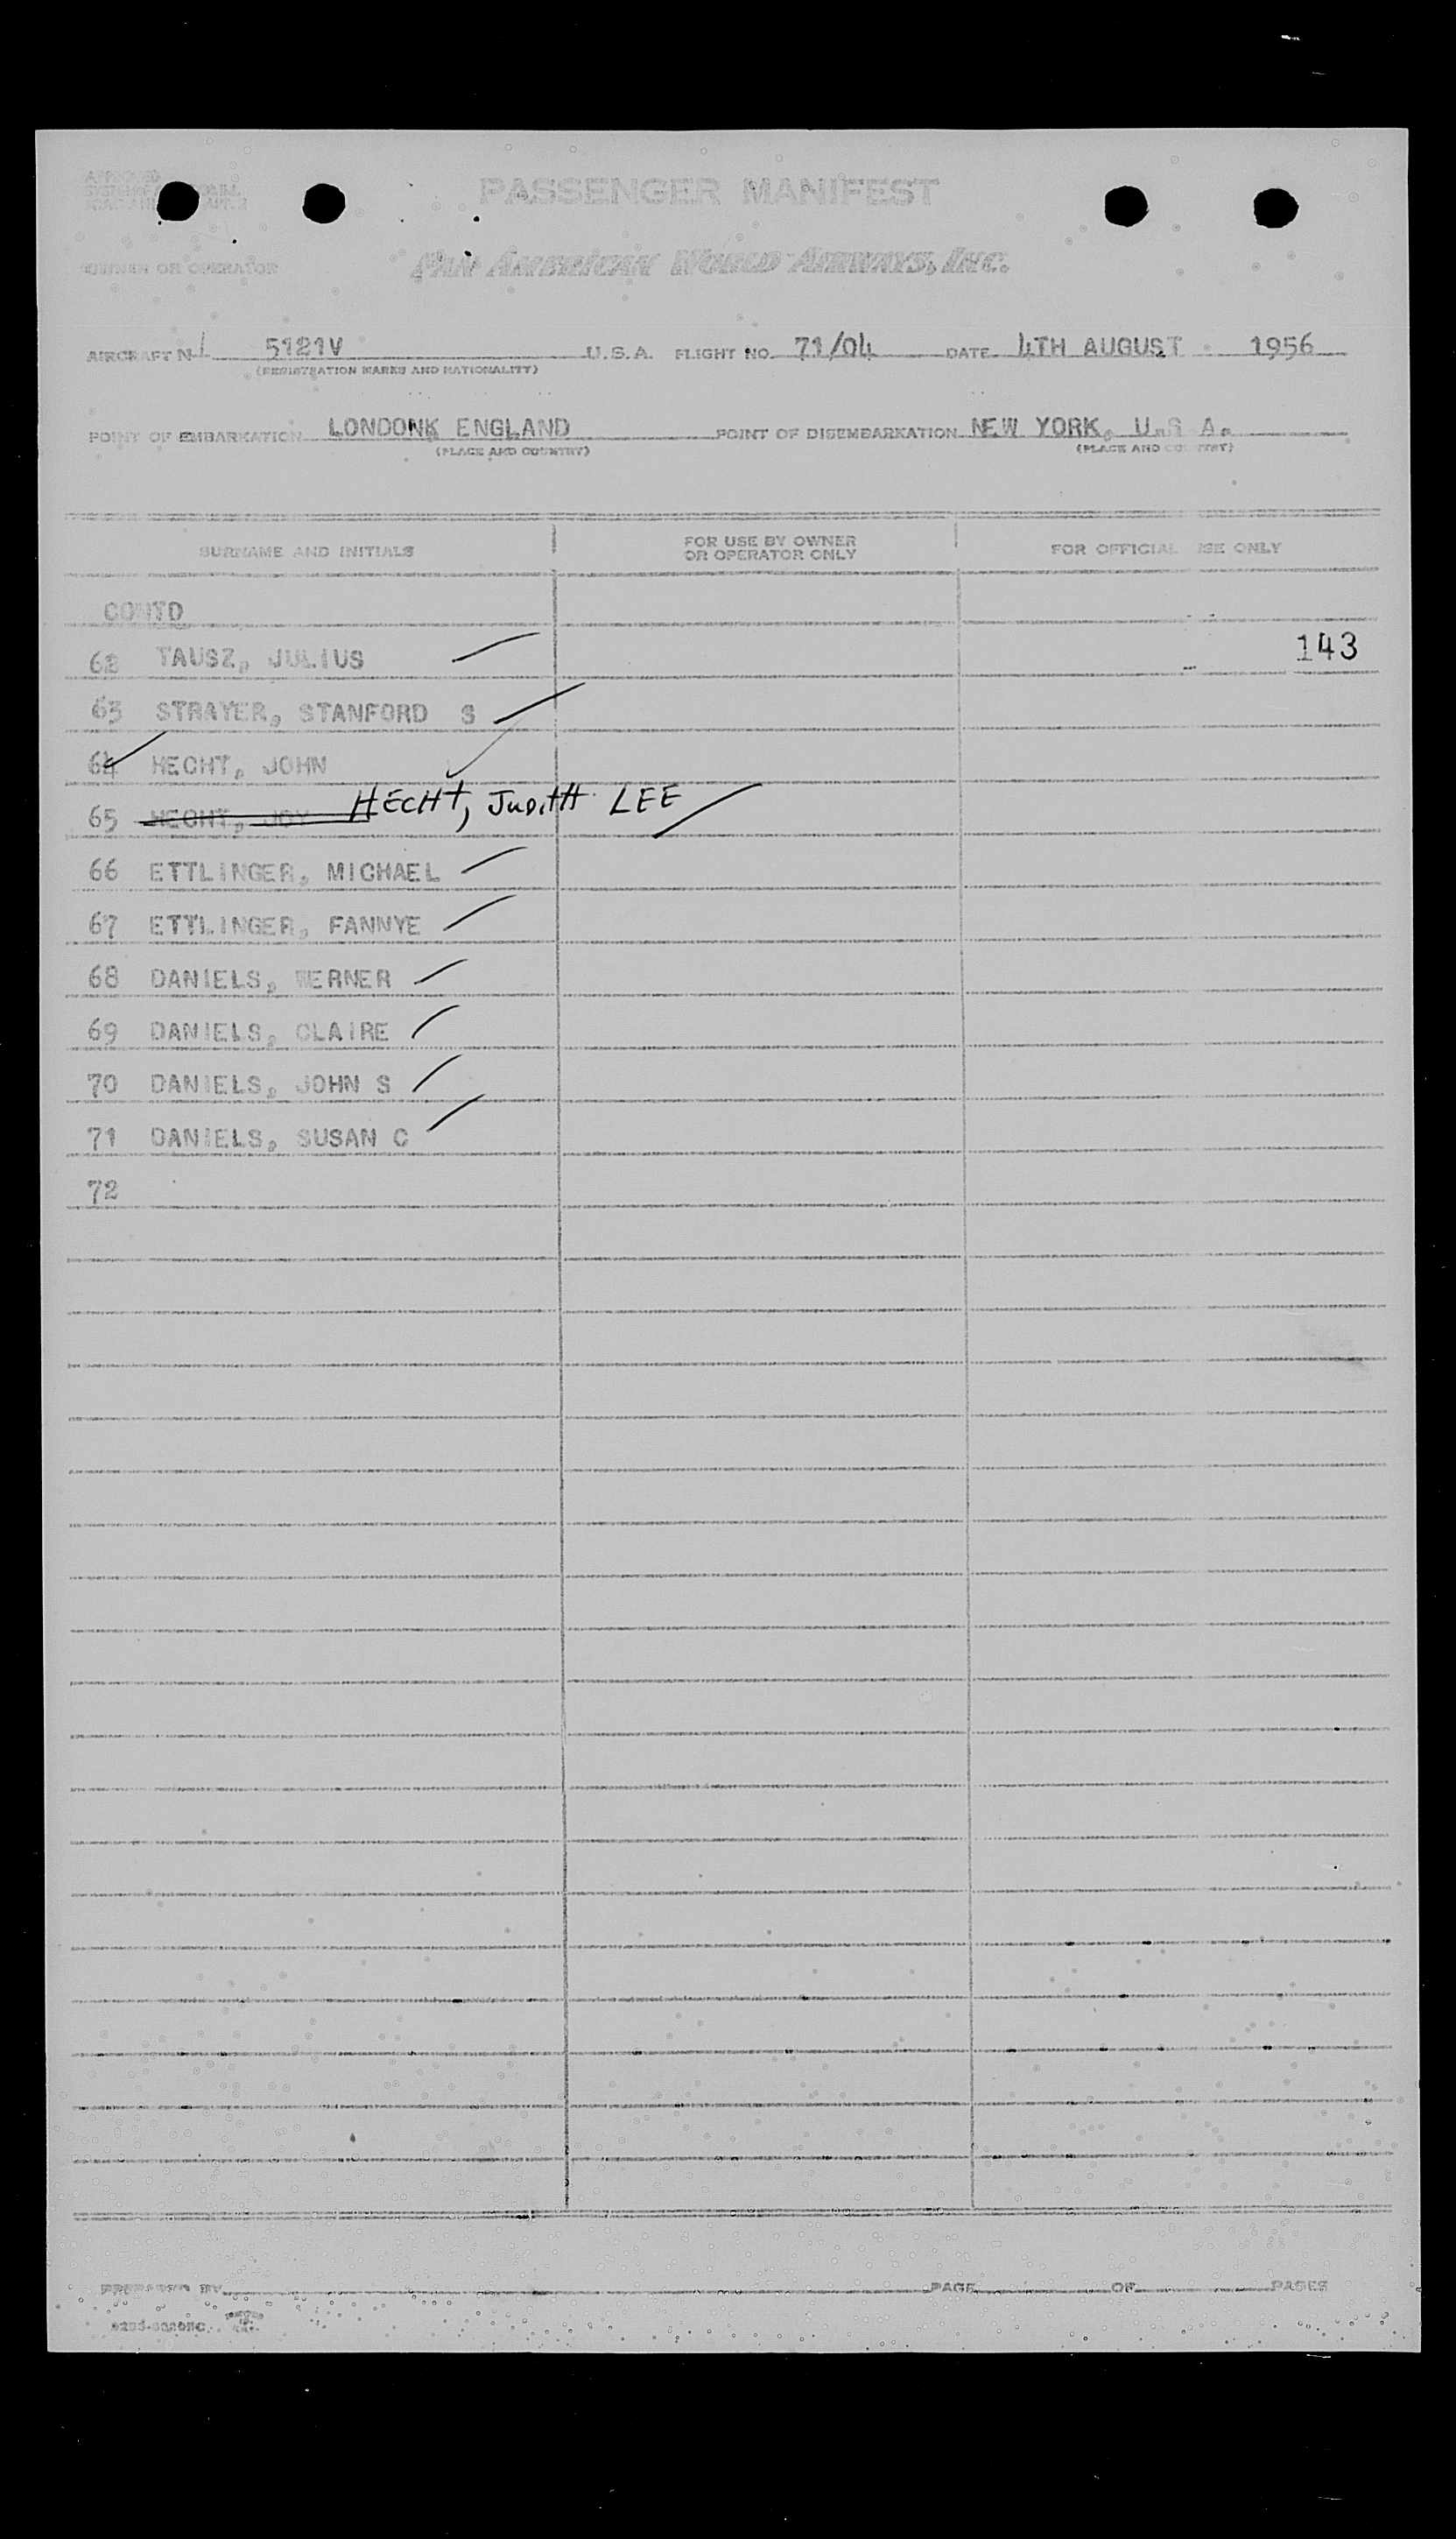 PASSENGER MANIFEST
OWNER OR OPERATOR
PAN AMERICAN WORLD AIRWAYS, INC.
AIRCRAFT N 5121V U.S.A. FLIGHT NO. 71/04 DATE 4TH AUGUST 1956
(REGISTRATION MARKS AND NATIONALITY)
POINT OF EMBARKATION LONDONK ENGLAND POINT OF DISEMBARKATION NEW YORK, U.S.A.
(PLACE AND COUNTRY) (PLACE AND COUNTRY)
SURNAME AND INITIALS
FOR USE BY OWNER
OR OPERATOR ONLY
FOR OFFICIAL USE ONLY
CONTD
62 TAUSZ, JULIUS 143
63 STRAYER, STANFORD S
64 HECHT, JOHN
65 HECHT, JOY HECHT, Judith LEE
66 ETTLINGER, MICHAEL
67 ETTLINGER, FANNYE
68 DANIELS, WERNER
69 DANIELS, CLAIRE
70 DANIELS, JOHN S
71 DANIELS, SUSAN C
72
PREPARED BY PAGE OF PAGES